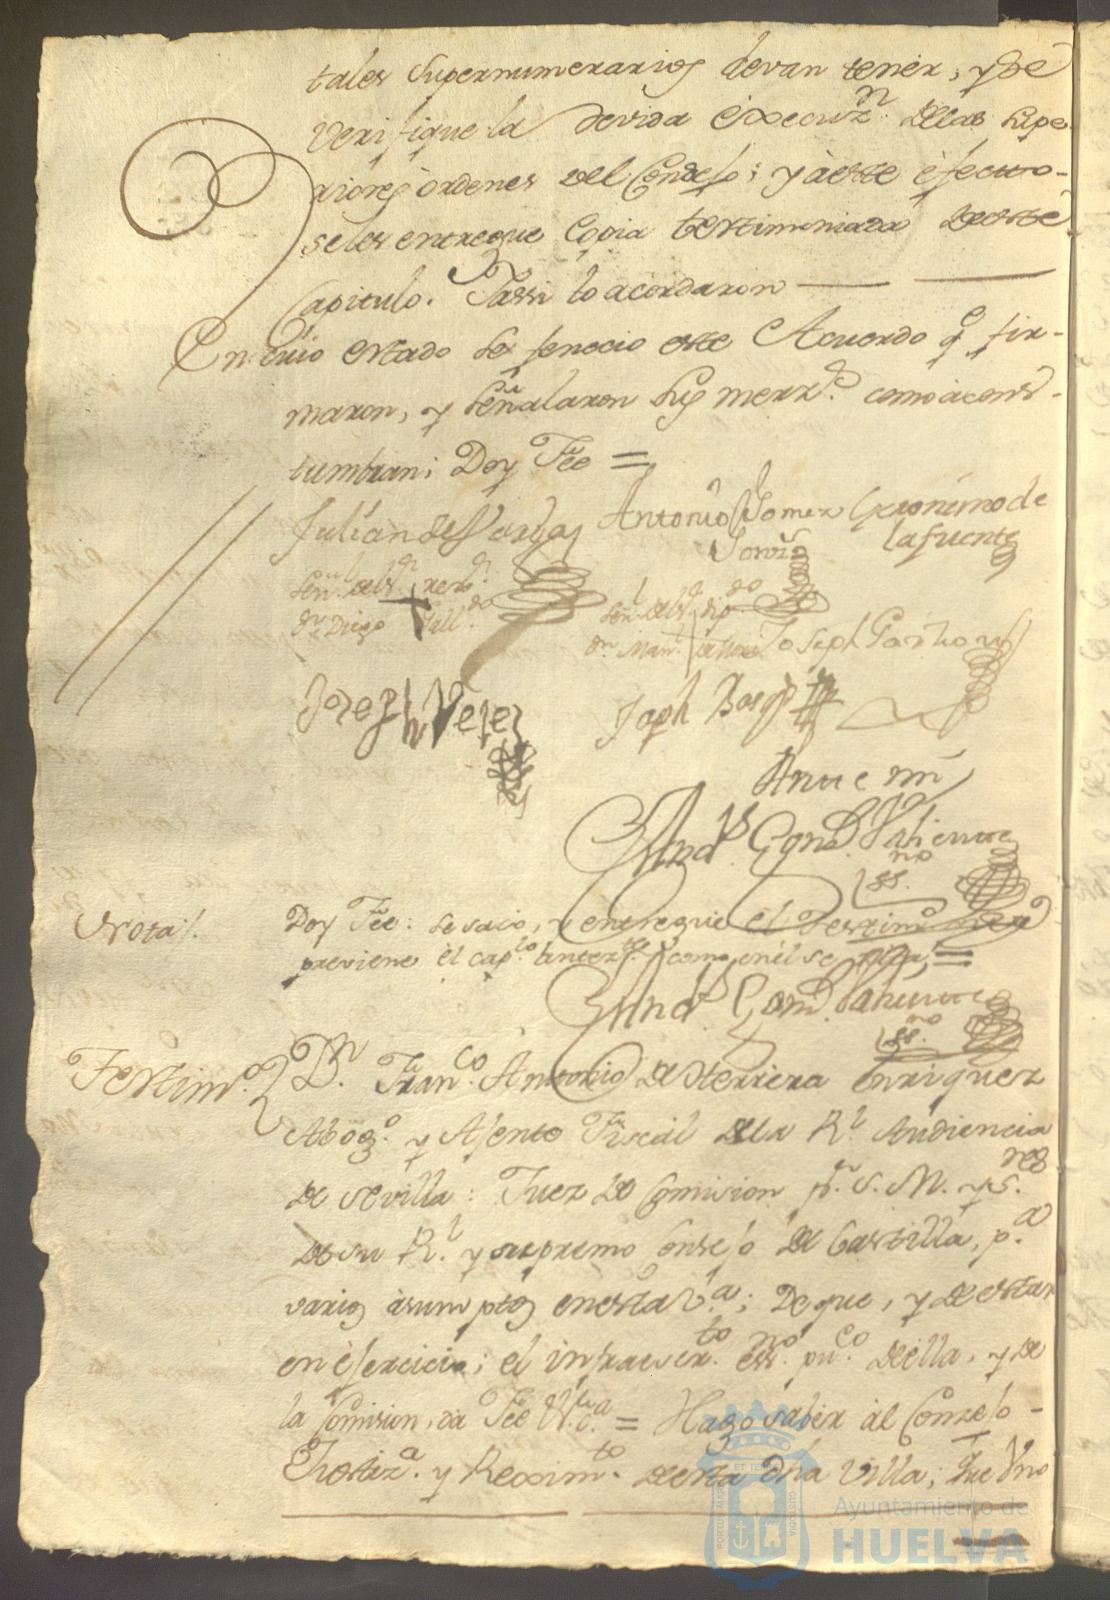 tales supernumerarios devan tener, y se
verifique la devida execuz.n de las supe-
riores ordenes del Consejo; y à este efecto
se les entregue Copia testimoniada de este
Capitulo. Y assi lo acordaron
En cuio estado se fenecio este Acuerdo q.e fir-
maron, y señalaron sus merz.s como acons-
tumbran; Doy Fée =
Julian de Vargas
Antonio Gomez
Geronimo de
la fuente
dn. Diego
Joseph Garzia
Jozeph Velez
Joseph
Ante mi
Valiente
ss.no
Nota.
Doy Fée: se saco, y entregue el Testim.o que
previene el cap.lo anter.te como en el se
Valiente
ss.no
Testim.o
D.n Fran.co Antonio de Herrera Enriquez
Abog.o y Ajente Fiscal de la R.l Audiencia
de Sevilla: Juez de Comision p.r S. M. y S.res
de su R.l y supremo Consejo de Castilla, p.a
varios asumptos en esta V.a; De que, y de estar
en èjercicio; el infraescr.to ess.no pu.co de ella, y de
la Comision, da Fée = Hago saber al Conzejo
Justiz.a y Reximi.to de esta dha Villa, que Vno
PORTUS MARIS ET TERRAE CUSTODIA
Ayuntamiento de
HUELVA